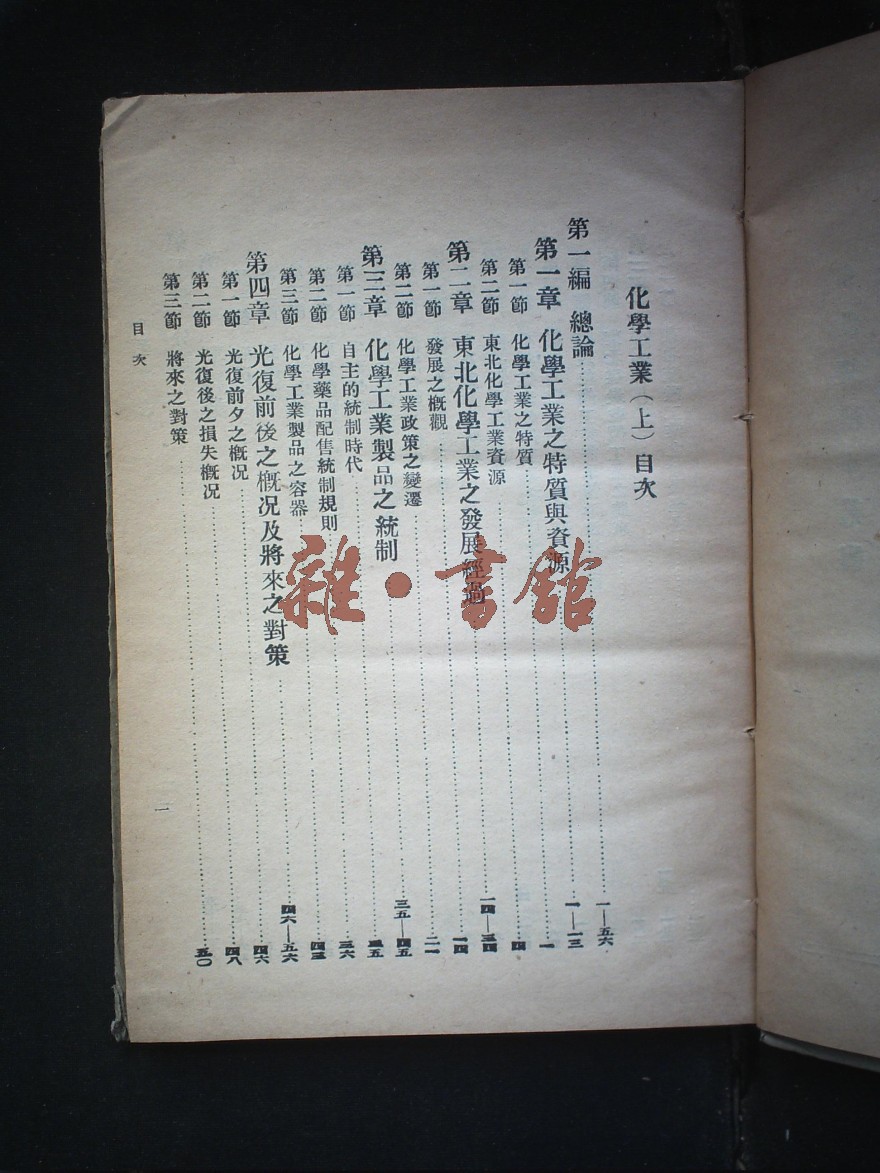 化學工業（上）目次
第一編 總論……一—五六
第一章 化學工業之特質與資源……一—一三
第一節 化學工業之特質……一
第二節 東北化學工業資源……四
第二章 東北化學工業之發展經過……一四—三四
第一節 發展之概觀……一四
第二節 化學工業政策之變遷……二一
第三章 化學工業製品之統制……三五—四五
第一節 自主的統制時代……三五
第二節 化學藥品配售統制規則……三六
第三節 化學工業製品之容器……四三
第四章 光復前後之概況及將來之對策……四六—五六
第一節 光復前夕之概況……四六
第二節 光復後之損失概況……四八
第三節 將來之對策……五〇
目次
一
雜·書館